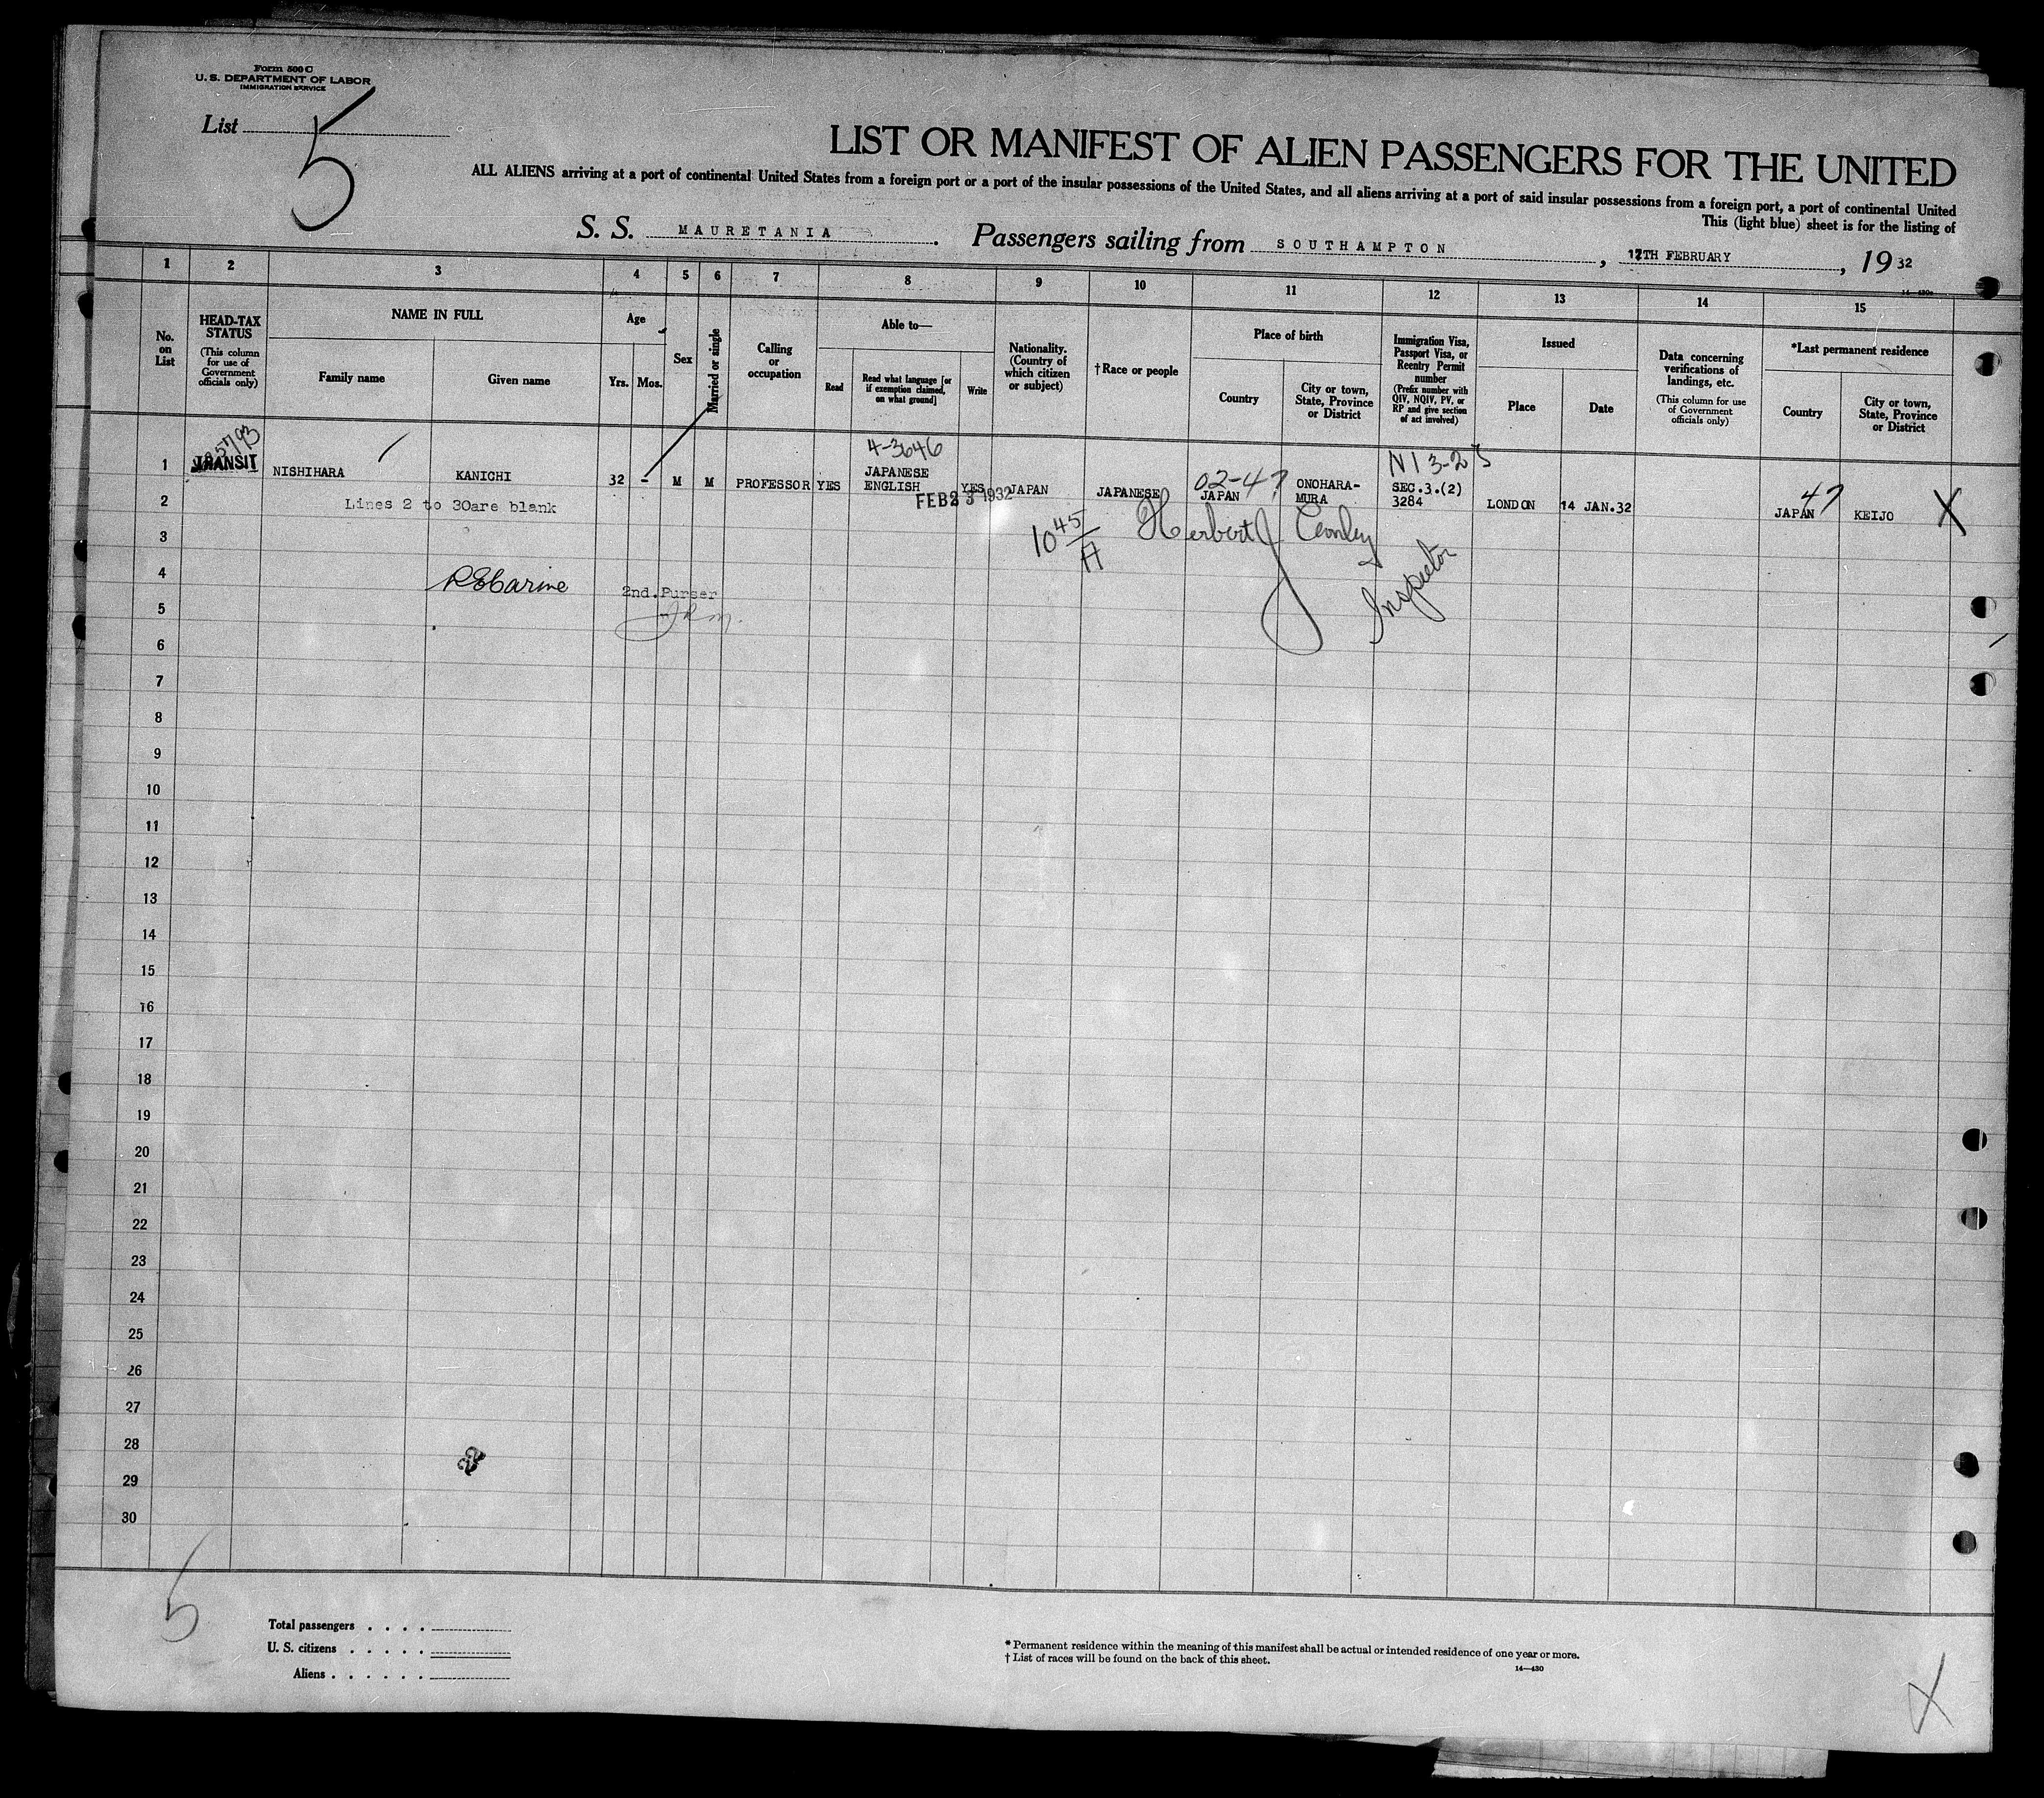 Form 500 C
U. S. DEPARTMENT OF LABOR
IMMIGRATION SERVICE
List 5
LIST OR MANIFEST OF ALIEN PASSENGERS FOR THE UNITED
ALL ALIENS arriving at a port of continental United States from a foreign port or a port of the insular possessions of the United States, and all aliens arriving at a port of said insular possessions from a foreign port, a port of continental United
This (light blue) sheet is for the listing of
S. S. MAURETANIA . Passengers sailing from SOUTHAMPTON , 17TH FEBRUARY , 19 32
14—430
1 2 3 4 5 6 7 8 9 10 11 12 13 14 15
No. on List
HEAD-TAX STATUS
(This column for use of Government officials only)
NAME IN FULL
Family name
Given name
Age
Yrs. Mos.
Sex
Married or single
Calling or occupation
Able to—
Read
Read what language [or if exemption claimed, on what ground]
Write
Nationality. (Country of which citizen or subject)
†Race or people
Place of birth
Country
City or town, State, Province or District
Immigration Visa, Passport Visa, or Reentry Permit number
(Prefix number with QIV, NQIV, PV, or RP and give section of act involved)
Issued
Place
Date
Data concerning verifications of landings, etc.
(This column for use of Government officials only)
*Last permanent residence
Country
City or town, State, Province or District
4-3646
1 TRANSIT NISHIHARA KANICHI 32 - M M PROFESSOR YES JAPANESE ENGLISH YES JAPAN JAPANESE 02-47 JAPAN ONOHARA-MURA SEC.3.(2) 3284 LONDON 14 JAN.32 47 JAPAN KEIJO X
FEB 23 1932
2 Lines 2 to 30are blank
3
10 45/A Herbert J Conley Inspector
4 2nd.Purser
5
6
7
8
9
10
11
12
13
14
15
16
17
18
19
20
21
22
23
24
25
26
27
28
29
30
5
Total passengers . . . .
U. S. citizens . . . . .
Aliens . . . . . .
* Permanent residence within the meaning of this manifest shall be actual or intended residence of one year or more.
† List of races will be found on the back of this sheet.
14—430
X